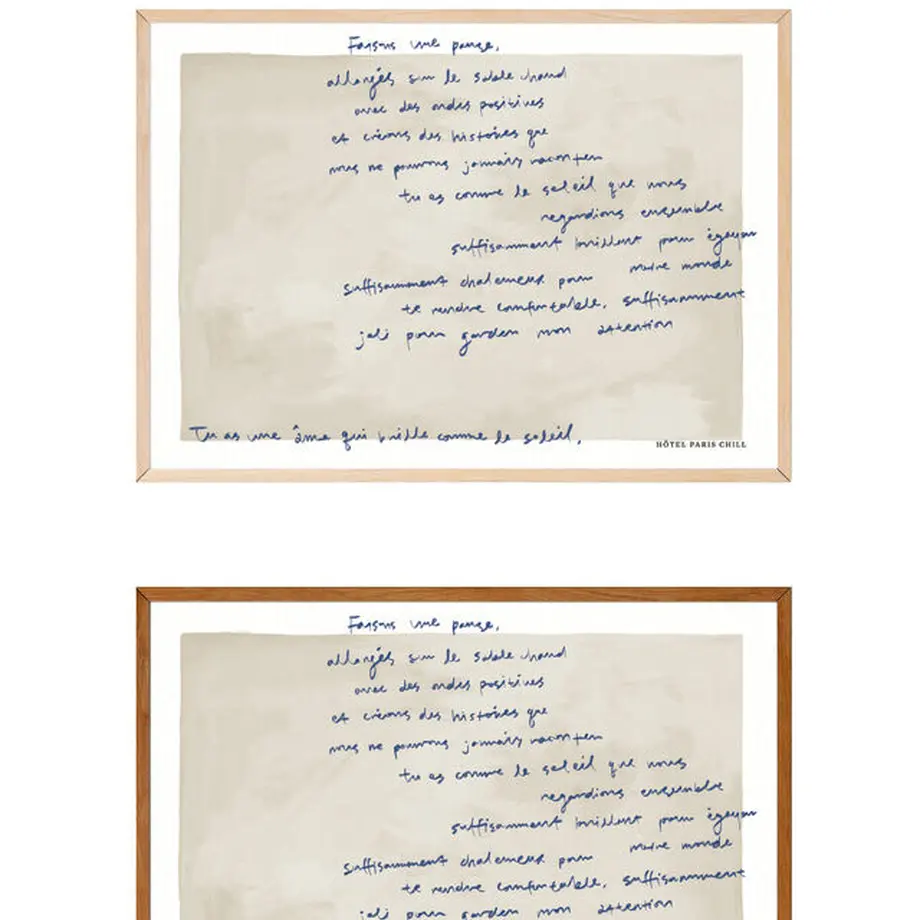 Faisons une pause,
allongés sur le sable chaud
avec des ondes positives
et créons des histoires que
nous ne pouvons jamais raconter
tu es comme le soleil que nous
regardions ensemble
suffisamment brillant pour égayer
notre monde
suffisamment chaleureux pour
te rendre comfortable, suffisamment
joli pour garder mon attention
Tu as une âme qui brille comme le soleil,
HÔTEL PARIS CHILL
Faisons une pause,
allongés sur le sable chaud
avec des ondes positives
et créons des histoires que
nous ne pouvons jamais raconter
tu es comme le soleil que nous
regardions ensemble
suffisamment brillant pour égayer
notre monde
suffisamment chaleureux pour
te rendre comfortable, suffisamment
joli pour garder mon attention